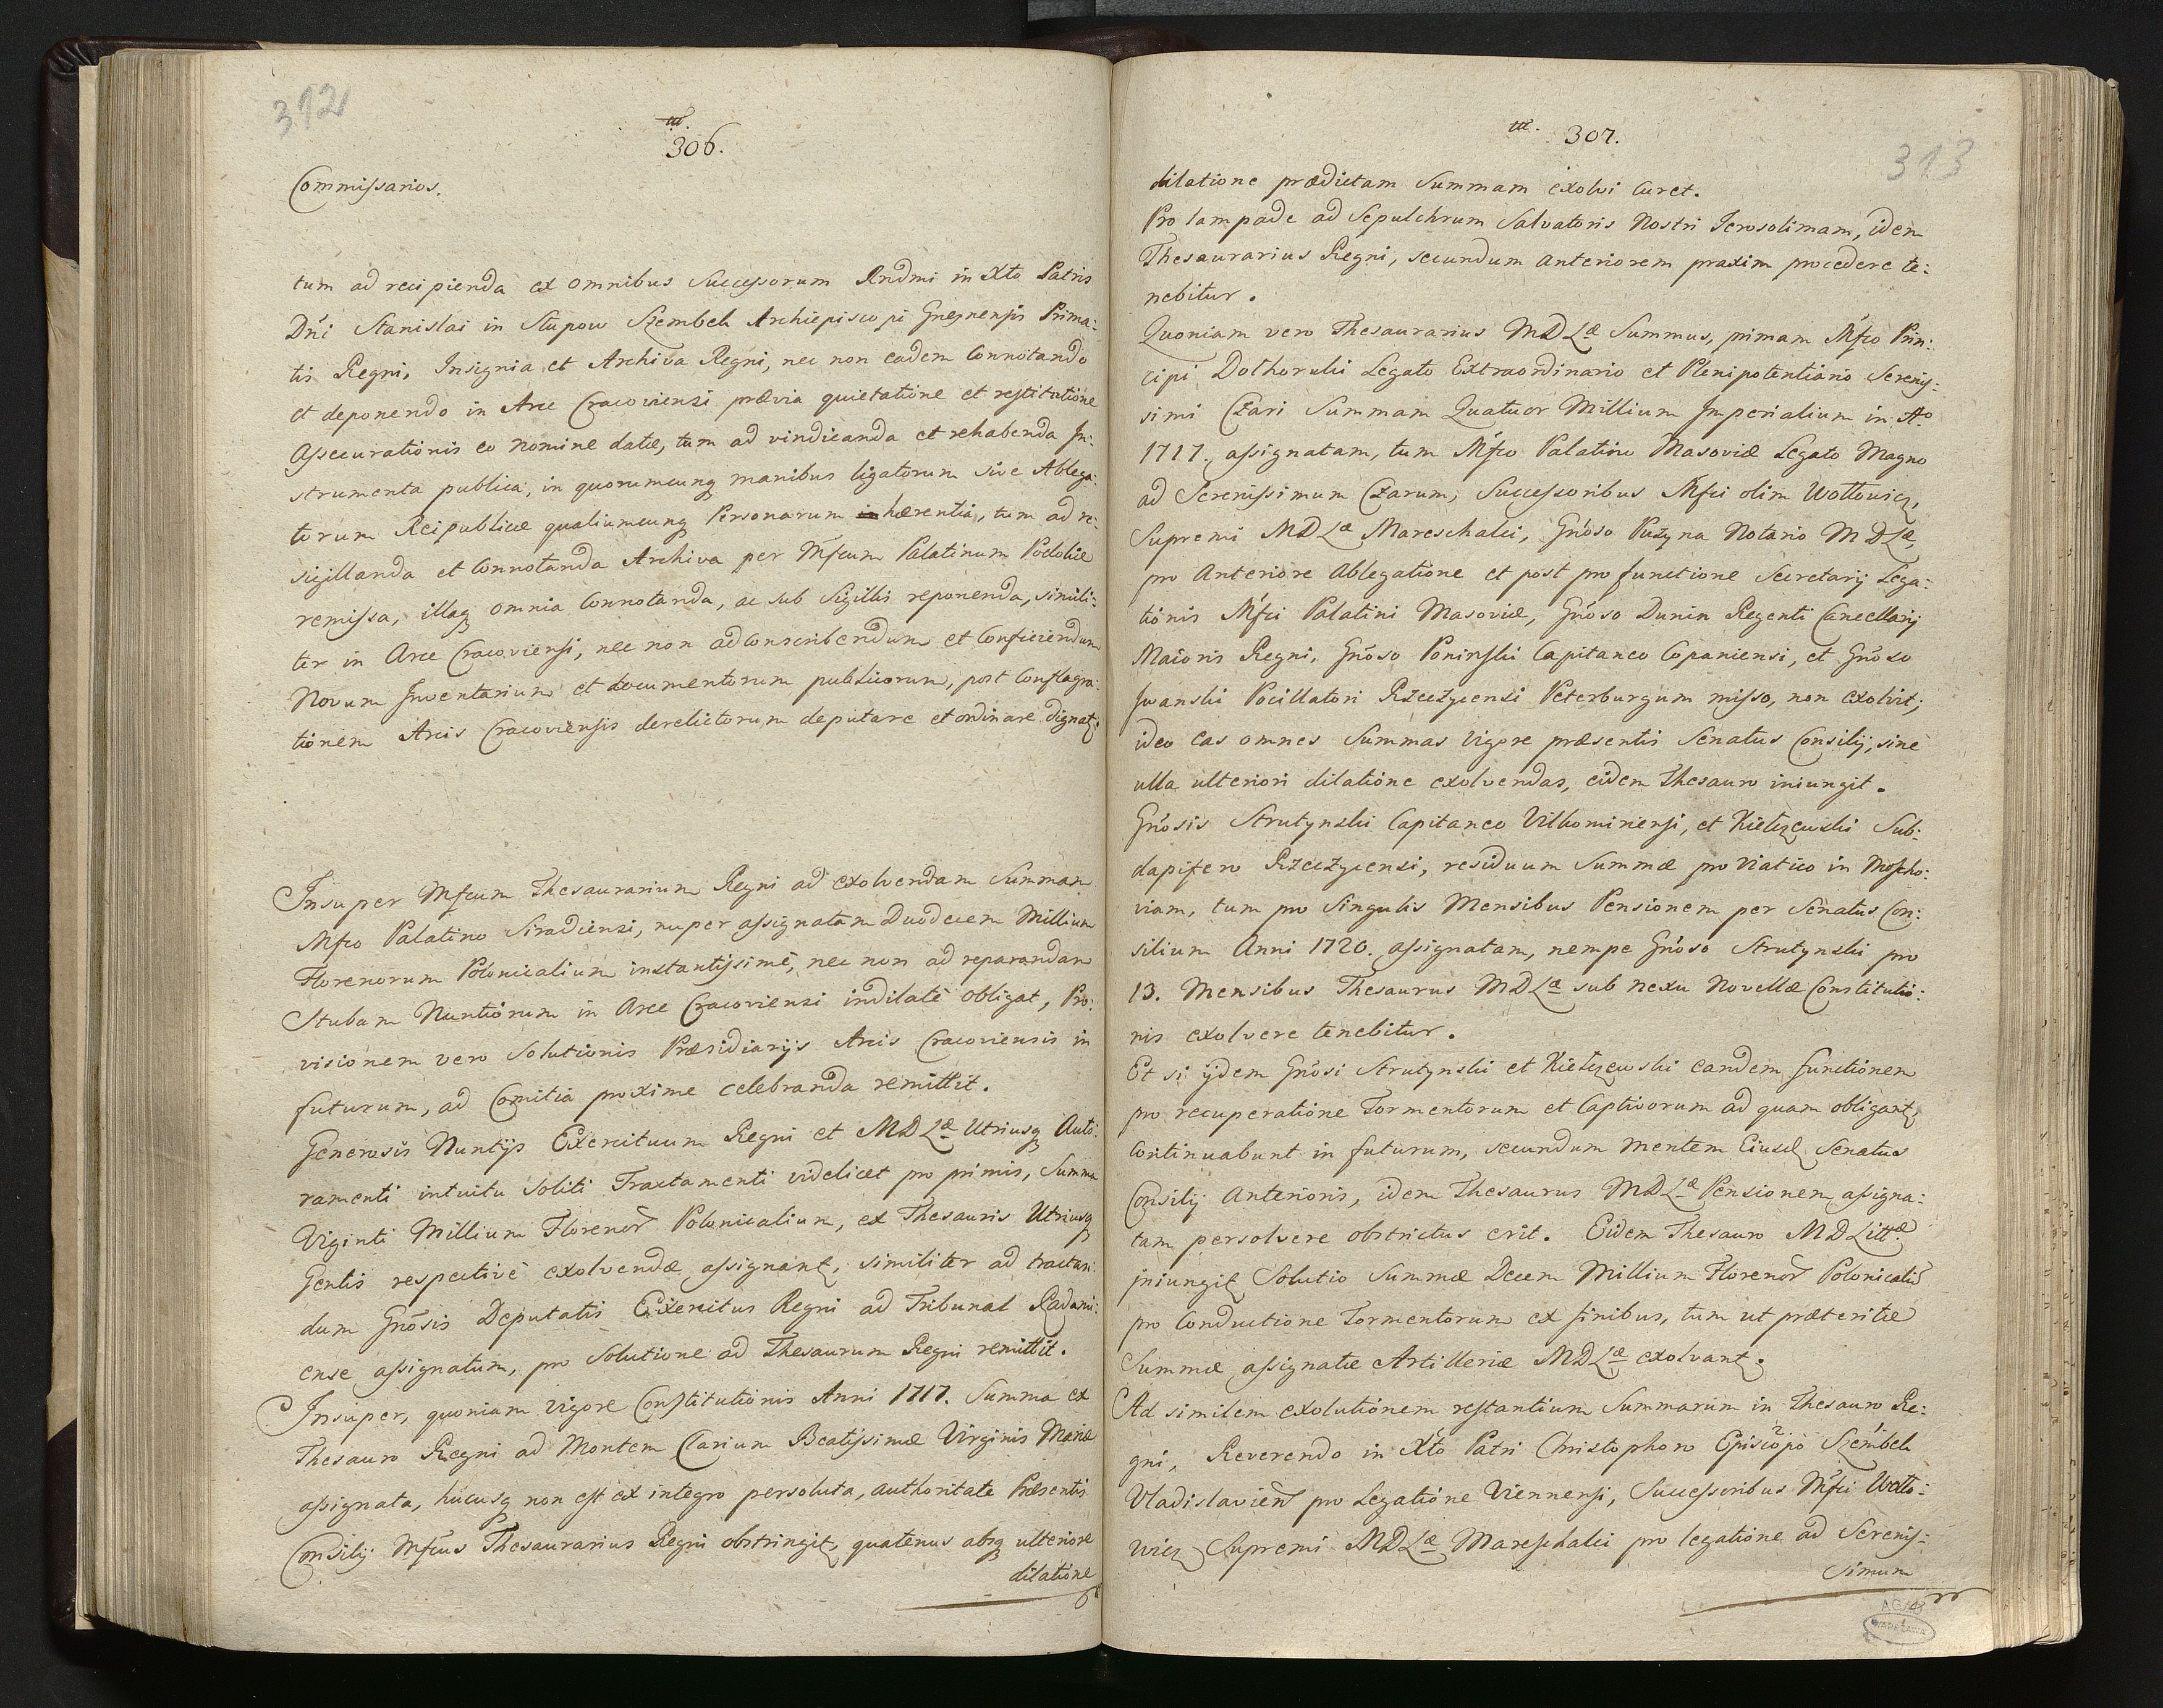 312
306.
Commissarios.
tum ad recipienda ex omnibus Successorum Rndmi in Xto Patris
Dni Stanislai in Slupow Szembek Archiepiscopi Gnesnensis Prima:
tis Regni, Insignia et Archiva Regni, nec non eadem Connotando
et deponendo in Arce Cracoviensi prævia quietatione et restitutione
Assecurationis eo nomine datæ, tum ad vindicanda et rehabenda In:
strumenta publica, in quorumcunq manibus ligatorum sive Ablega:
torum Reipublicæ qualiumcunq Personarum hærentia, tum ad re:
sigillanda et Connotanda Archiva per Mfcum Palatinum Podoliæ
remissa, illaq omnia Connotanda, ac sub Sigillis reponenda, simili:
ter in Arce Cracoviensi, nec non ad Conscribendum et Conficiendum
Novum Inventarium et documentorum publicorum, post Conflagra:
tionem Arcis Cracoviensis derelictorum deputare et ordinare dignat.
Insuper Mfcum Thesaurarium Regni ad exolvendam Summam
Mfco Palatino Siradiensi, nuper assignatam Duodecem Millium
Florenorum Polonicalium instantissimè, nec non ad reparandam
Stubam Nuntiorum in Arce Cracoviensi indilatè obligat, Pro:
visionem vero Solutionis Præsidiarijs Arcis Cracoviensis in
futurum, ad Comitia proxime celebranda remittit.
Generosis Nuntijs Exercituum Regni et MDLæ Utriusq Auto:
ramenti intuitu Soliti Tractamenti videlicet pro primis, Summa
Viginti Millium Florenor Polonicalium, ex Thesauris Utriusq
Gentis respectivè exolvendæ assignant, similiter ad tractan:
dum Gnosis Deputatis Exercitus Regni ad Tribunal Radomi:
ense assignatum, pro Solutione ad Thesaurum Regni remittit.
Insuper, quoniam vigore Constitutionis Anni 1717. Summa ex
Thesauro Regni ad Montem Clarium Beatissimæ Virginis Mariæ
assignata, hucusq non est ex integro persoluta, authoritate Præsentis
Consilij Mfcus Thesaurarius Regni obstringit, quatenus absq ulteriore
dilatione
313
307.
dilatione prædictam Summam exolvi Curet.
Pro lampade ad Sepulchrum Salvatoris Nostri Jerosolimam, idem
Thesaurarius Regni, secundum anteriorem praxim procedere te:
nebitur.
Quoniam vero Thesaurarius MDLæ Summus, primam Mfco Prin:
cipi Dolhoruki Legato Extraordinario et Plenipotentiario Serenis:
simi Czari Summam Quatuor Millium Imperialium in Ao
1717. assignatam, tum Mfco Palatino Masoviæ Legato Magno
ad Serenissimum Czarum, Successoribus Mfci olim Wollowicz,
Supremi MDLæ Mareschalci, Gnoso Puzyna Notario MDLæ,
pro Anteriore Ablegatione et post pro functione Secretarij Lega:
tionis Mfci Palatini Masoviæ, Gnoso Dunin Regenti Cancellarij
Maioris Regni, Gnoso Poninski Capitaneo Copaniensi, et Gnoso
Iwanski Pocillatori Rzeczycensi Peterburgum misso, non exolvit;
ideo Eas omnes Summas Vigore præsentis Senatus Consilij, sine
ulla ulteriori dilatione exolvendas, eidem Thesauro iniungit.
Gnosis Strutynski Capitaneo Vilkomiriensi, et Kielczewski Sub:
dapifero Rzeczycensi, residuum Summæ pro Viatico in Moscho:
viam, tum pro Singulis Mensibus Pensionem per Senatus Con:
silium Anni 1720. assignatam, nempe Gnoso Strutynski pro
13. Mensibus Thesaurus MDLæ sub nexu Novellæ Constitutio:
nis exolvere tenebitur.
Et si ijdem Gnosi Strutynski et Kielczewski eandem functionem
pro recuperatione Tormentorum et Captivorum ad quam obligant,
Continuabunt in futurum, secundum mentem Eiusd Senatus
Consilij Anterioris, idem Thesaurus MDLæ Pensionem assigna:
tam persolvere obstrictus erit. Eidem Thesauro MDLittæ
iniungit Solutio Summæ Decem Millium Florenor Polonicaliu
pro Conductione Tormentorum ex finibus, tum ut præteritæ
Summæ assignatæ Artilleriæ MDLæ exolvant.
Ad similem exolutionem restantium Summarum in Thesauro Re:
gni, Reverendo in Xto Patri Christophoro Episcopo Szembek
Vladislavien pro Legatione Viennensi, Successoribus Mfci Wollo:
wicz Supremi MDLæ Mareschalci pro legatione ad Serenis:
simum